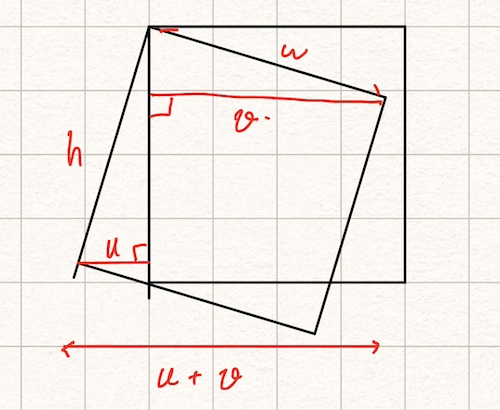 w
v.
h
u
u + v